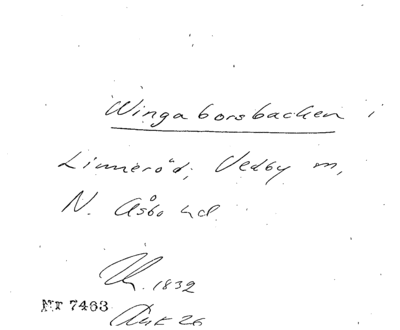 Wingaborsbacken i
Linneröd, Vedby m,
N. Åsbo hd
Th. 1832
Nr 7463
Ank 26